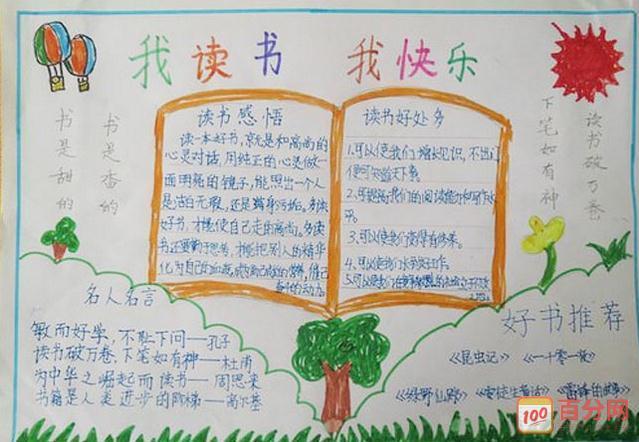 我读书 我快乐
书是香的
书是甜的
读书破万卷
下笔如有神
读书感悟
读一本好书，就是和高尚的
心灵对话，用纯正的心灵做一
面明亮的镜子，能照出一个人
是洁白无瑕，还是满身污垢。多读
好书，才能使自己走向高尚。多读
书还要勤于思考，才能把别人的精华
化为自己的血液，成为自己成长的营养，催己
奋进的动力。
读书好处多
1.可以使我们增长见识，不出门
便可知道天下事。
2.可提高我们的阅读能力和写作水
平。
3.可以使我们变得有修养。
4.可以使我们
5.可以使我们
名人名言
敏而好学，不耻下问——孔子
读书破万卷，下笔如有神——杜甫
为中华之崛起而读书——周恩来
书籍是人类进步的阶梯——高尔基
好书推荐
《昆虫记》《一千零一夜》
《绿野仙踪》《安徒生童话》《雷锋的故事》
100 百分网